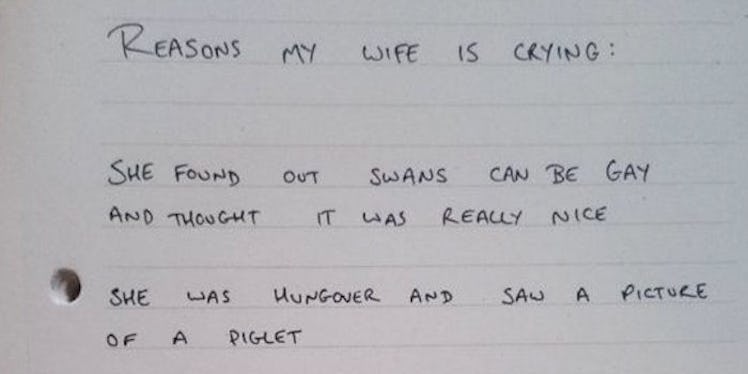 REASONS MY WIFE IS CRYING:
SHE FOUND OUT SWANS CAN BE GAY
AND THOUGHT IT WAS REALLY NICE
SHE WAS HUNGOVER AND SAW A PICTURE
OF A PIGLET